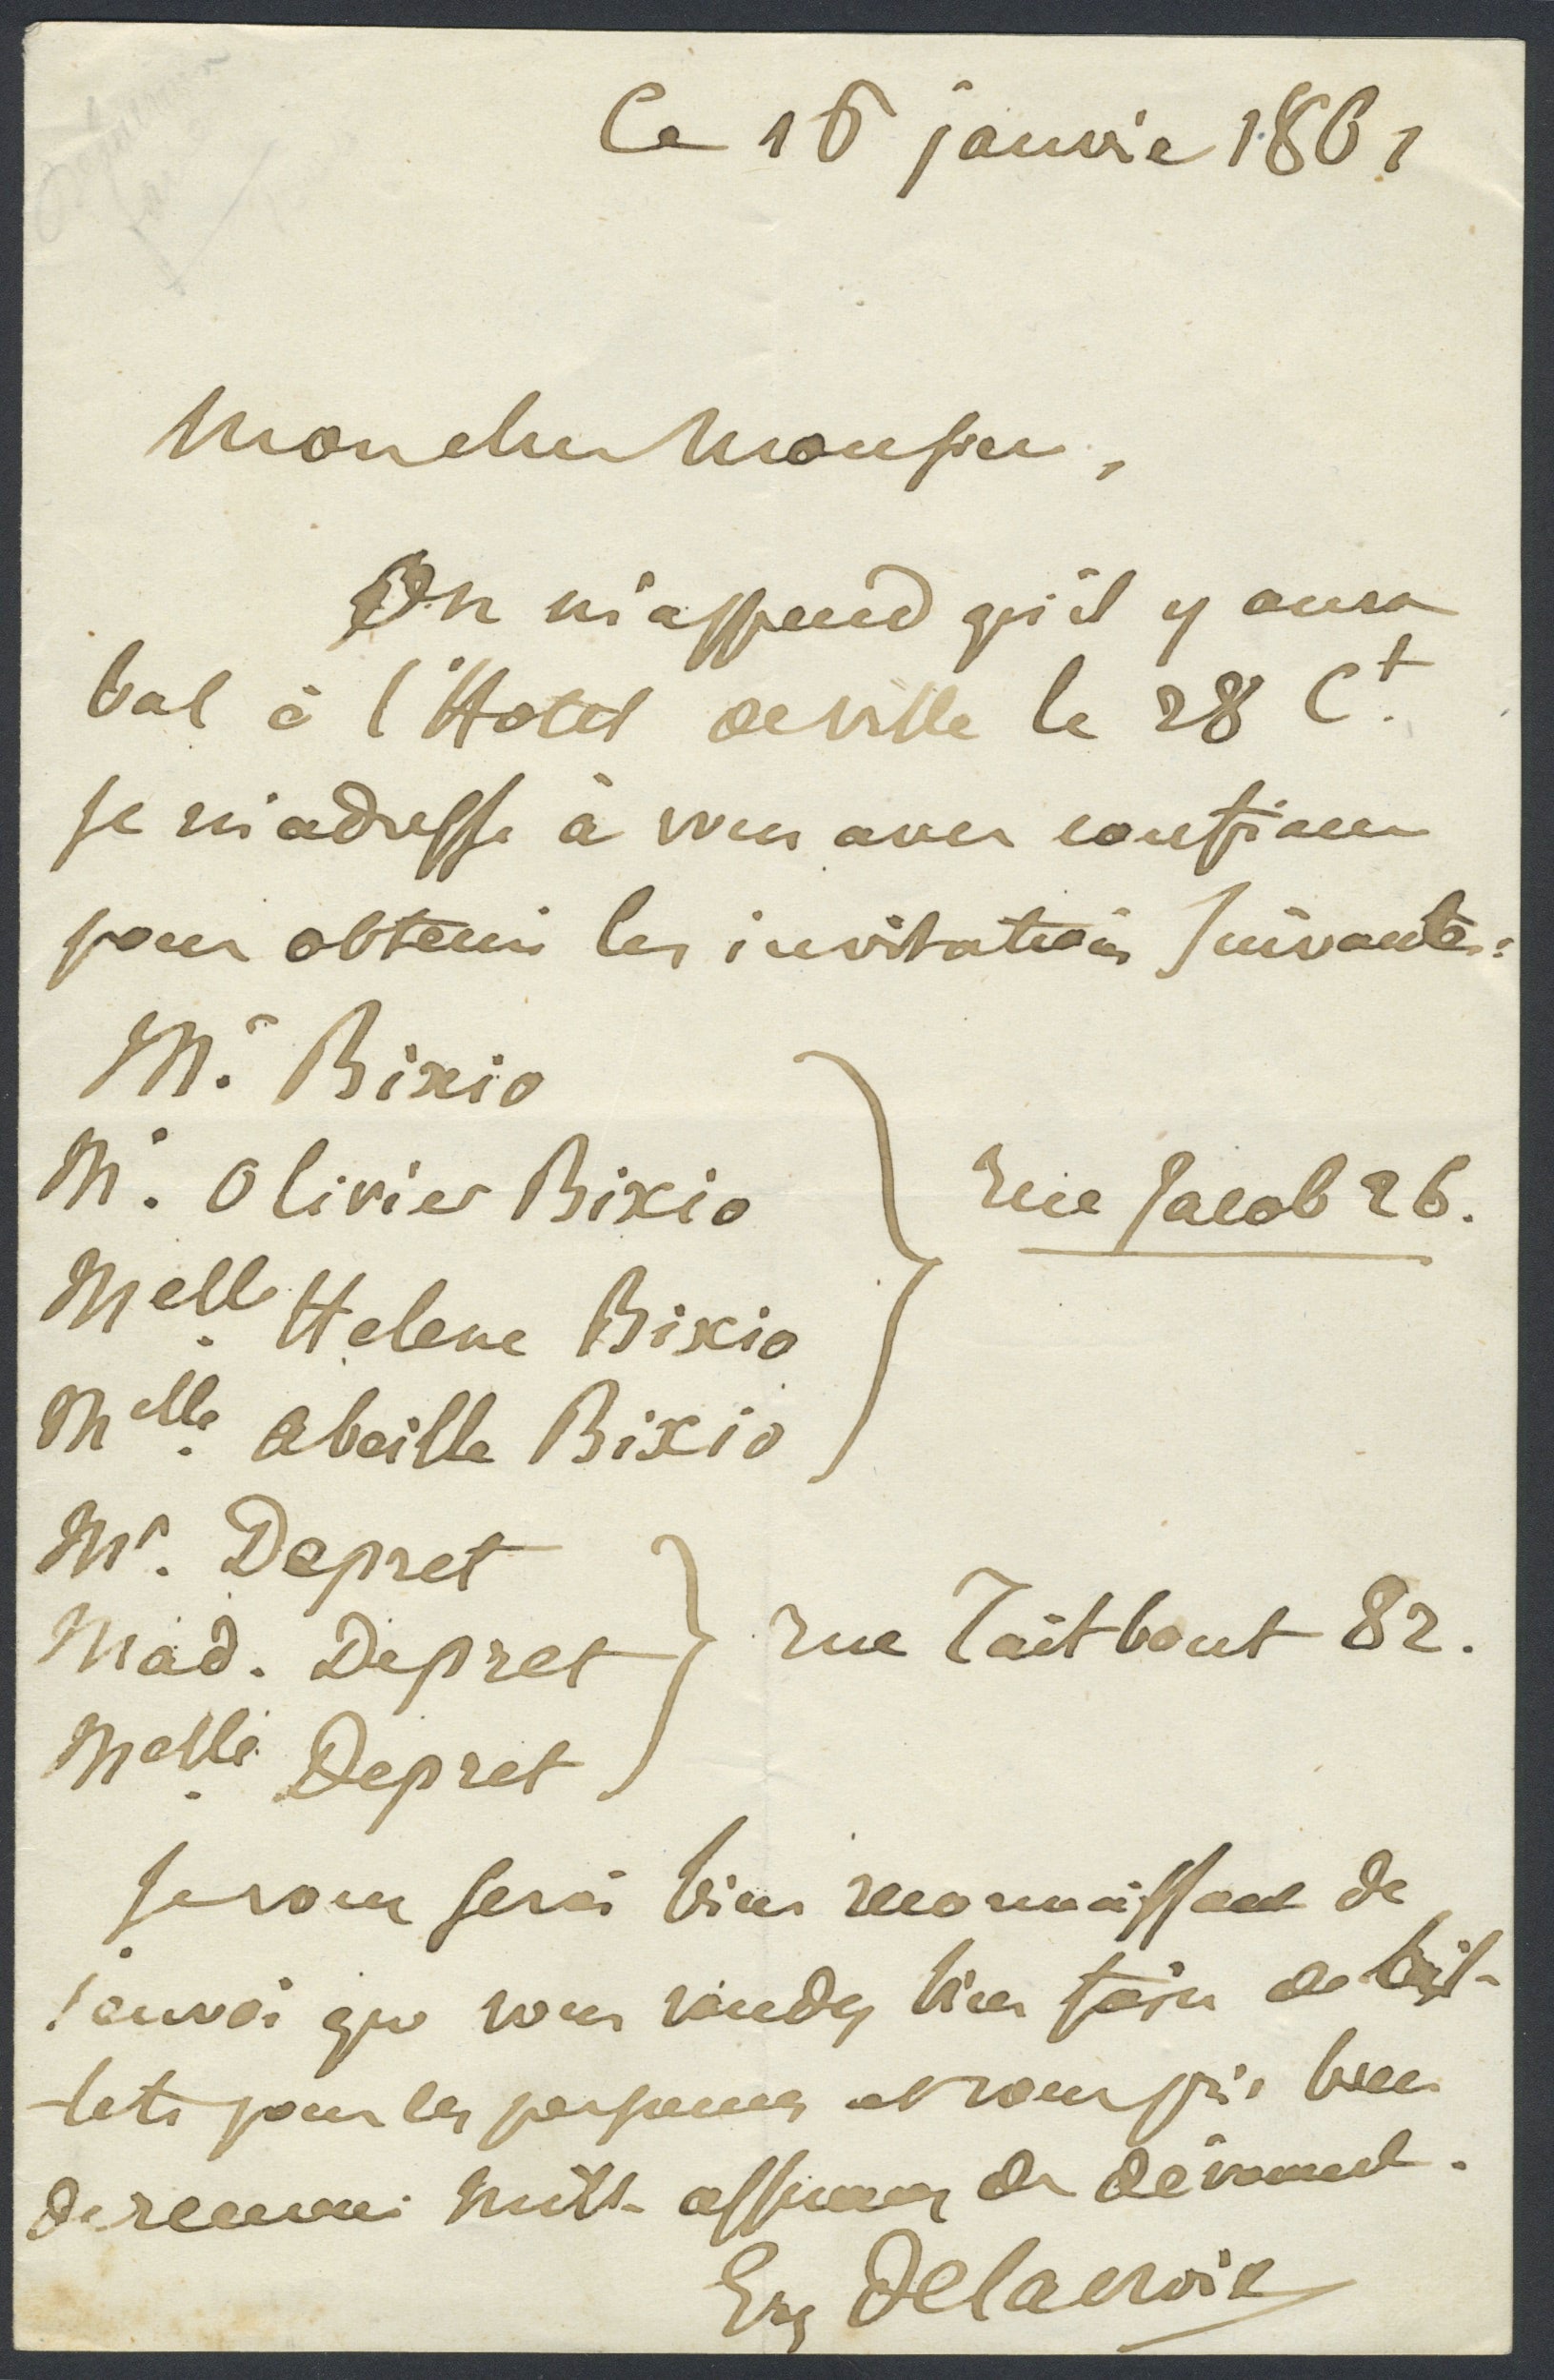 Ce 16 janvier 1861
Mon cher Monsieur,
On m'apprend qu'il y aura
bal à l'Hotel de ville le 28 Ct.
Je m'adresse à vous avec confiance
pour obtenir les invitations suivantes:
Mr. Bixio
Mr. Olivier Bixio
Melle. Helene Bixio
rue Jacob 26.
Melle. Abeille Bixio
Mr. Depret
Mad. Depret
rue Taitbout 82.
Melle. Depret
Je vous serai bien reconnaissant de
l'envoi que vous voudrez bien faire de bil-
-lets pour les personnes et vous prie bien
de recevoir mille assurances de dévouement.
Eug Delacroix